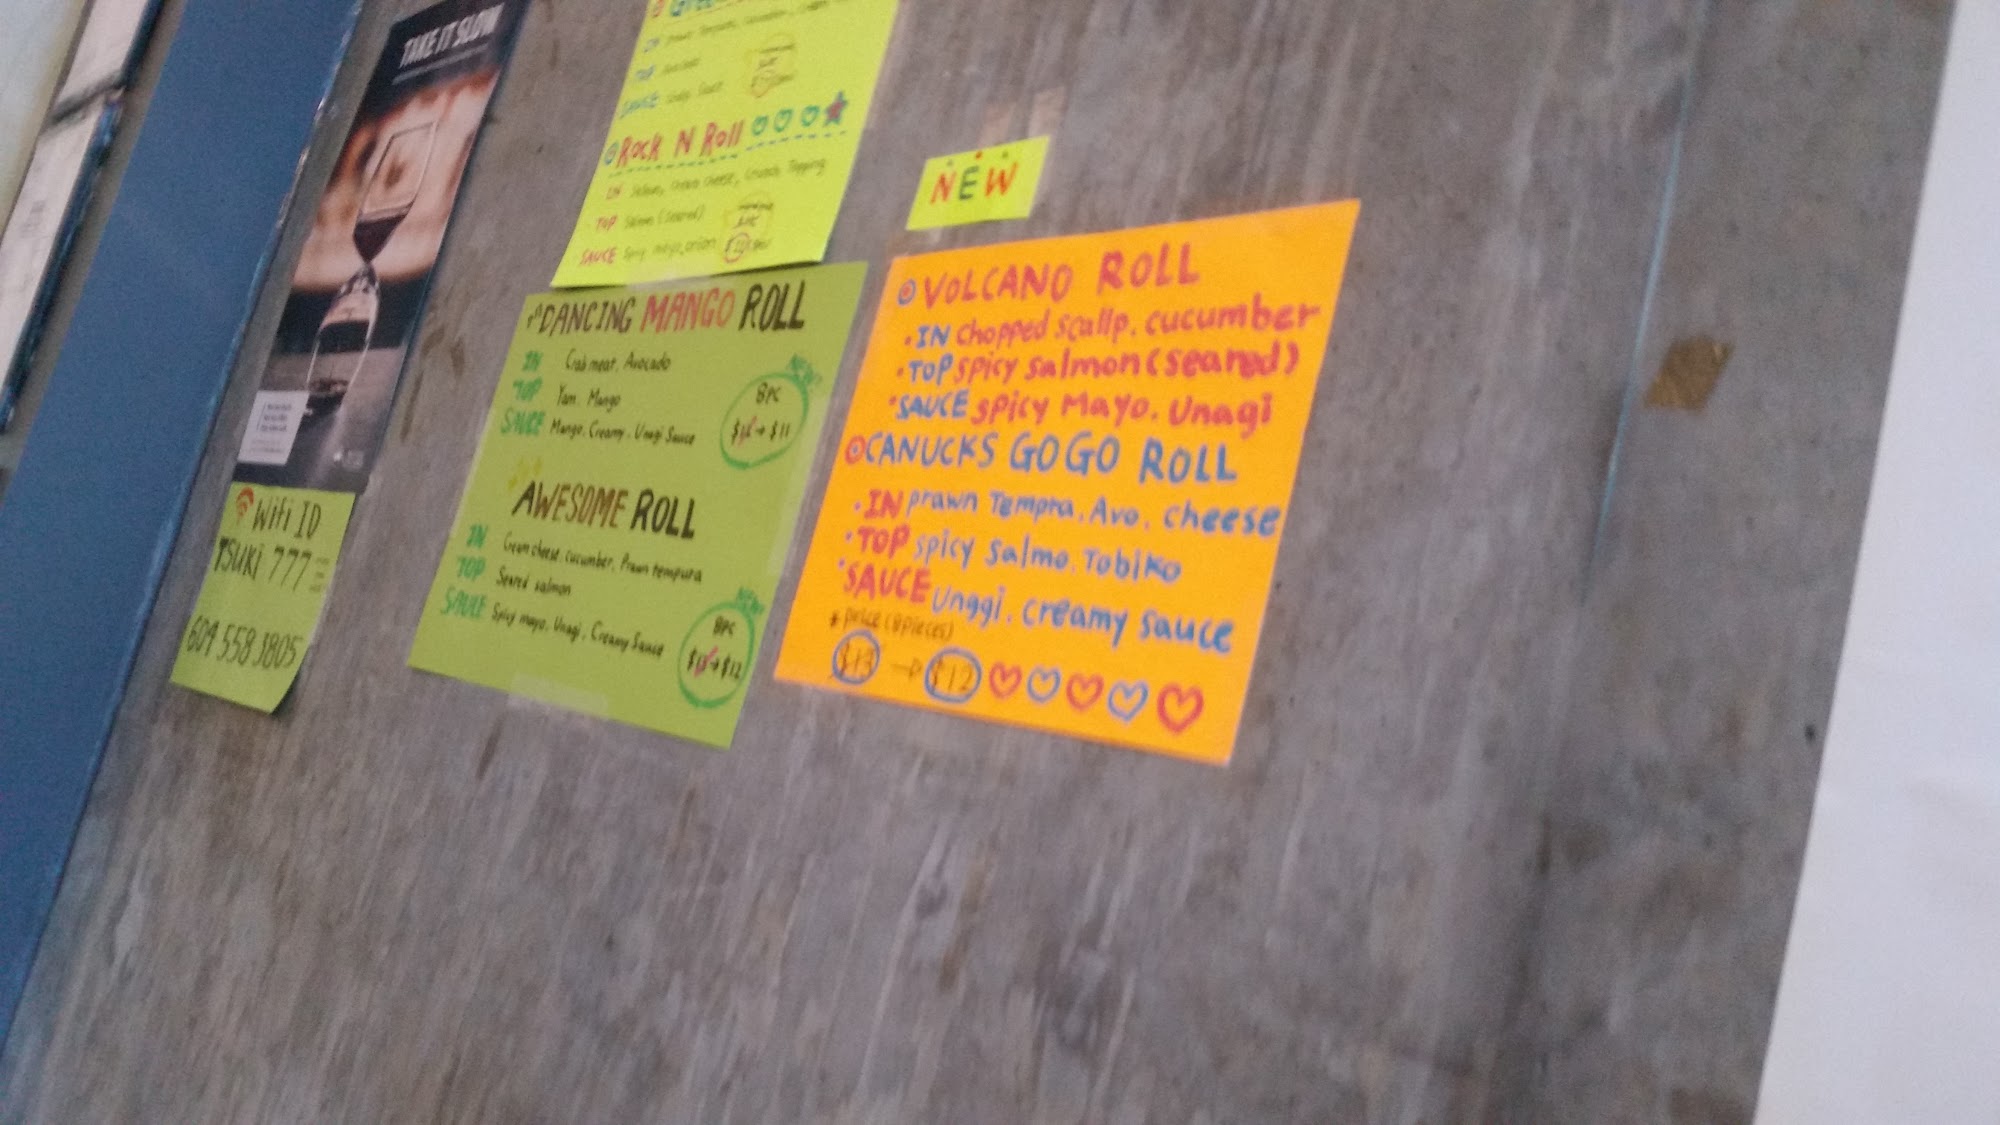 TAKE IT SLOW
TOP Avocado
SAUCE
Rock N Roll
IN Cream cheese, Crunch Topping
TOP Salmon (Seared)
SAUCE Spicy mayo, onion
NEW
DANCING MANGO ROLL
IN Crab meat, Avocado
TOP Yam, Mango
SAUCE Mango, Creamy, Unagi Sauce
NEW!
8PC
→ $11
AWESOME ROLL
IN Cream cheese, cucumber, Prawn tempura
TOP Seared salmon
SAUCE Spicy mayo, Unagi, Creamy Sauce
NEW!
8PC
$13 → $12
VOLCANO ROLL
• IN Chopped Scallp, cucumber
• TOP Spicy Salmon (Seared)
• SAUCE Spicy Mayo, Unagi
CANUCKS GOGO ROLL
• IN prawn Tempra, Avo, cheese
• TOP Spicy Salmo, Tobiko
• SAUCE Unggi, creamy sauce
* price (8pieces)
$13 → $12
Wifi ID
TSUKI 777
604 558 3805